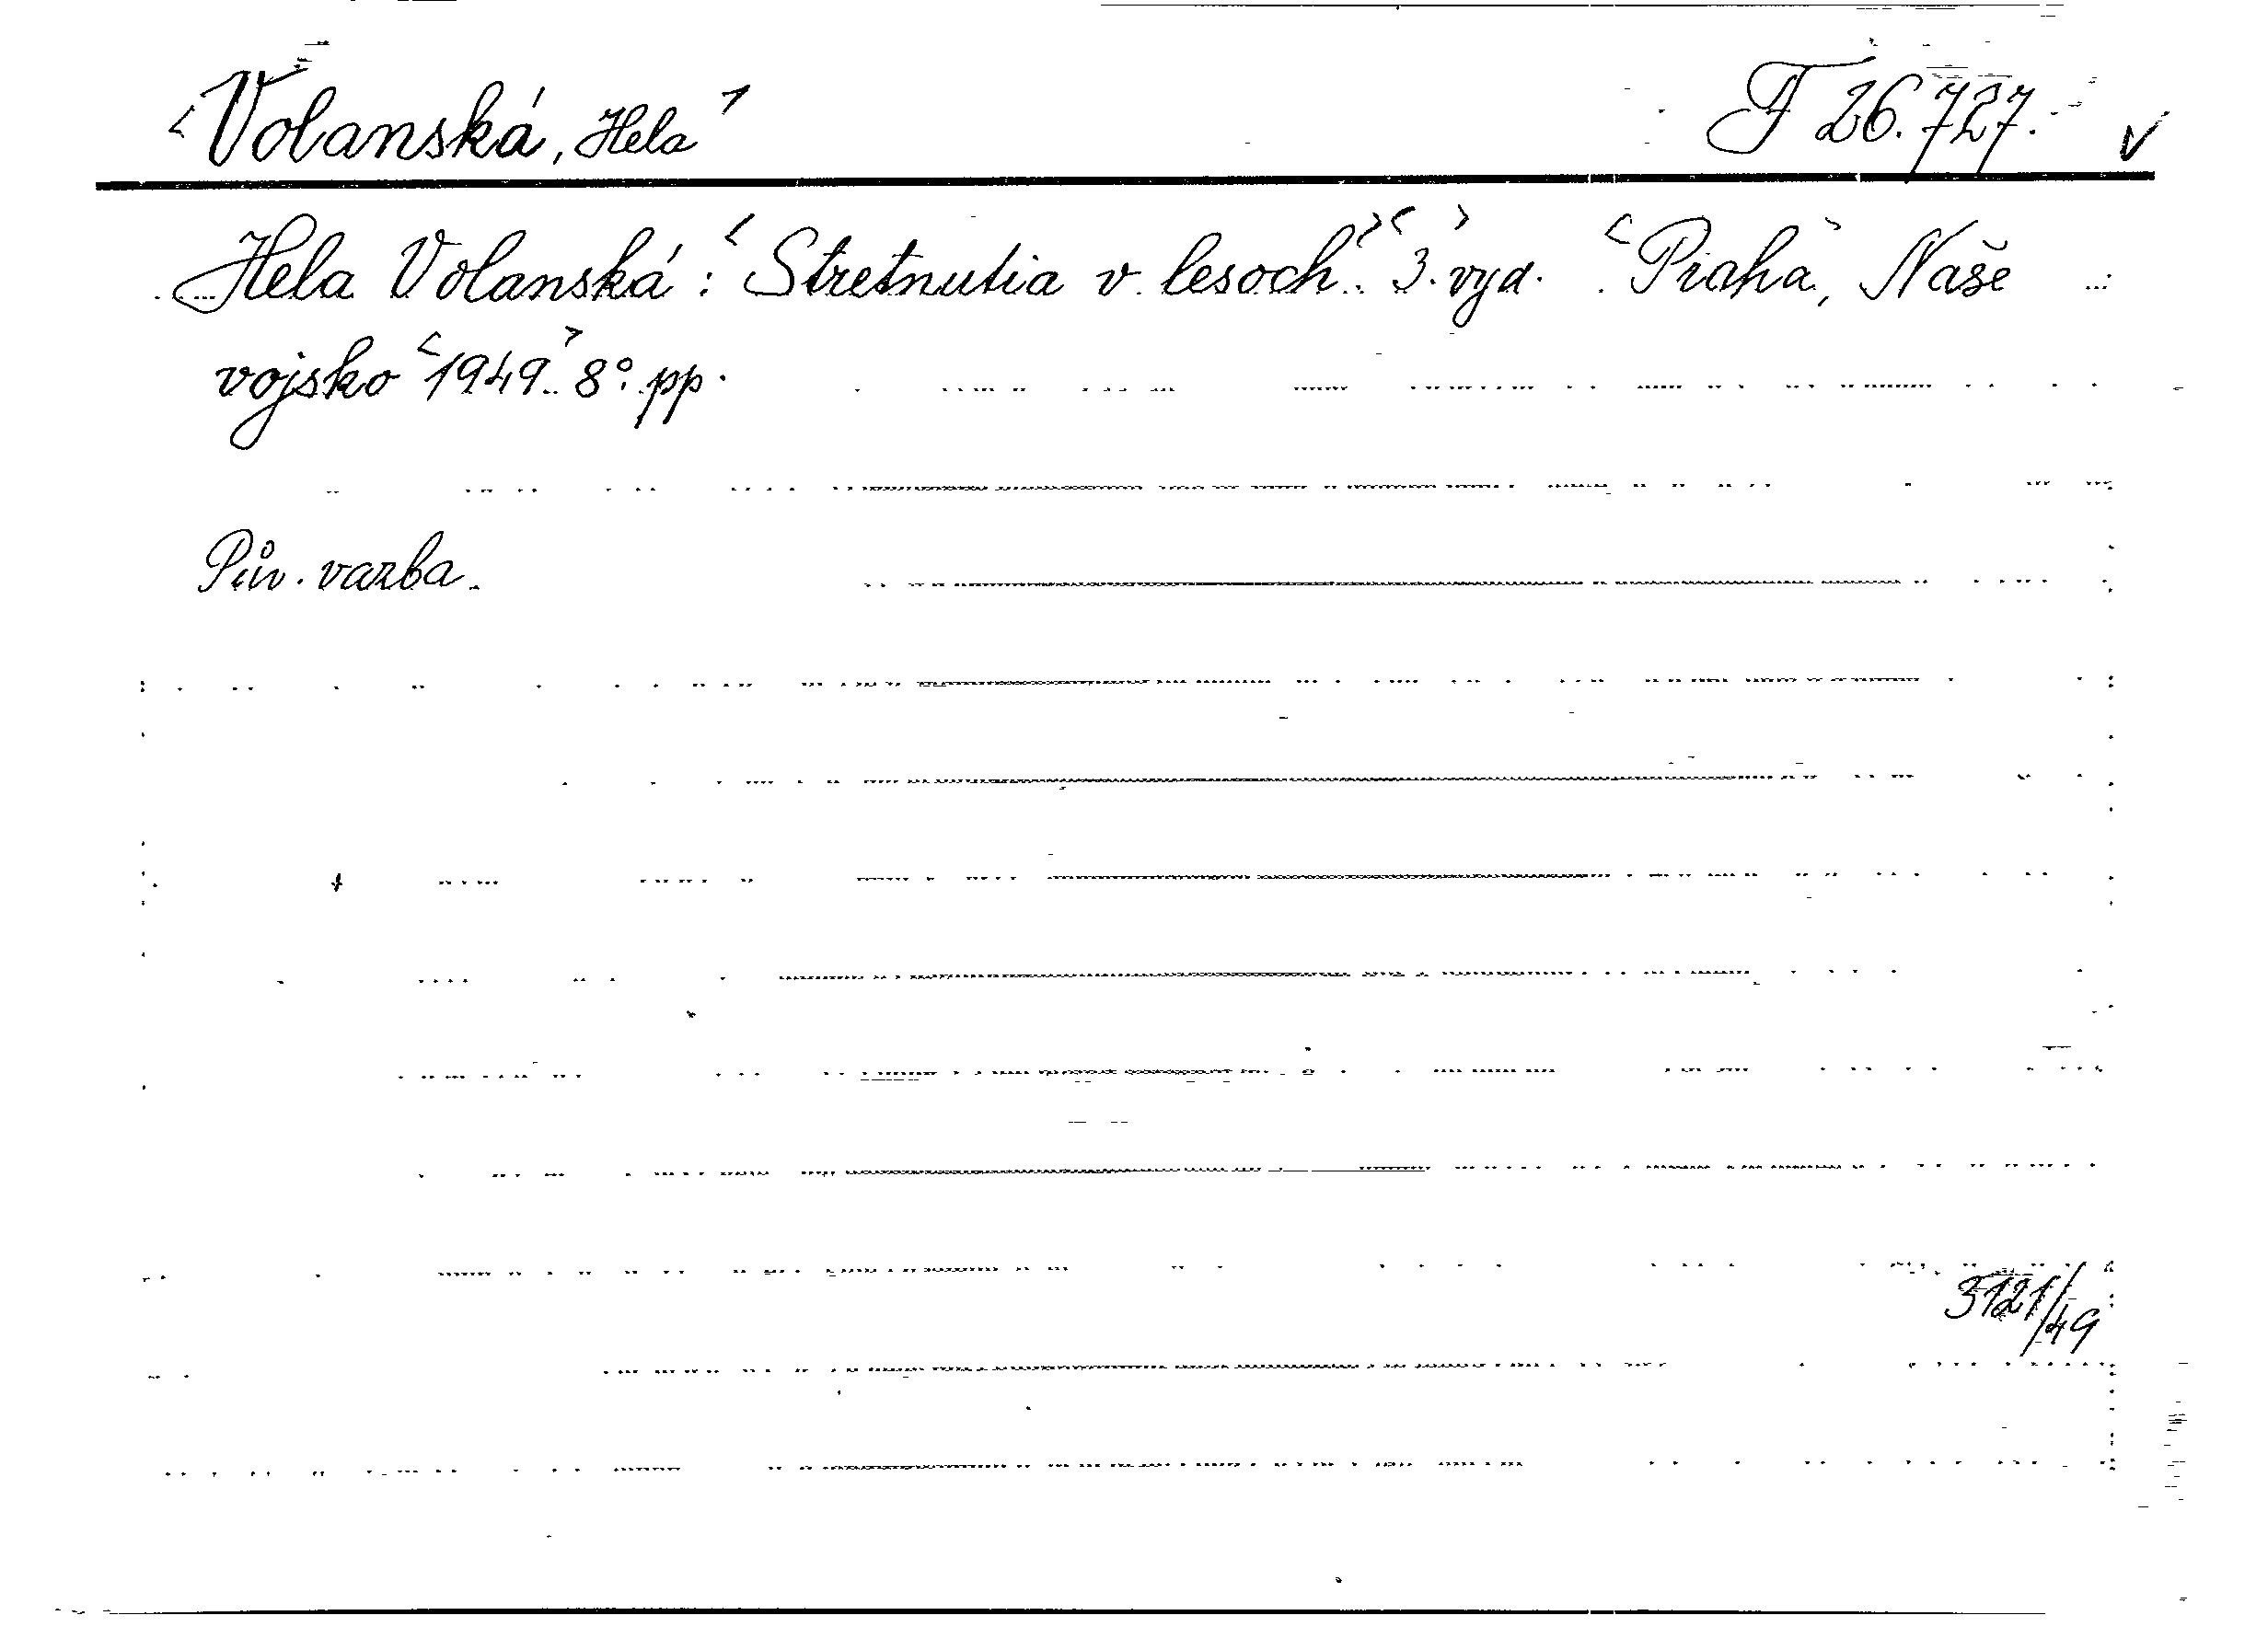 Volanská, Hela
F 26.727.
Hela Volanská: Stretnutia v lesoch. 3. vyd. Praha, Naše
vojsko 1949. 8°. pp.
Pův. vazba.
3121/49